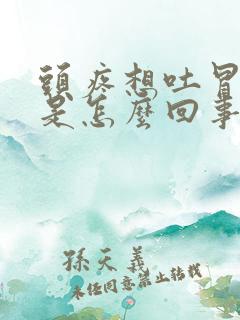 頭疼想吐冒
是怎麼回事
孫天義
未經同意禁止轉載